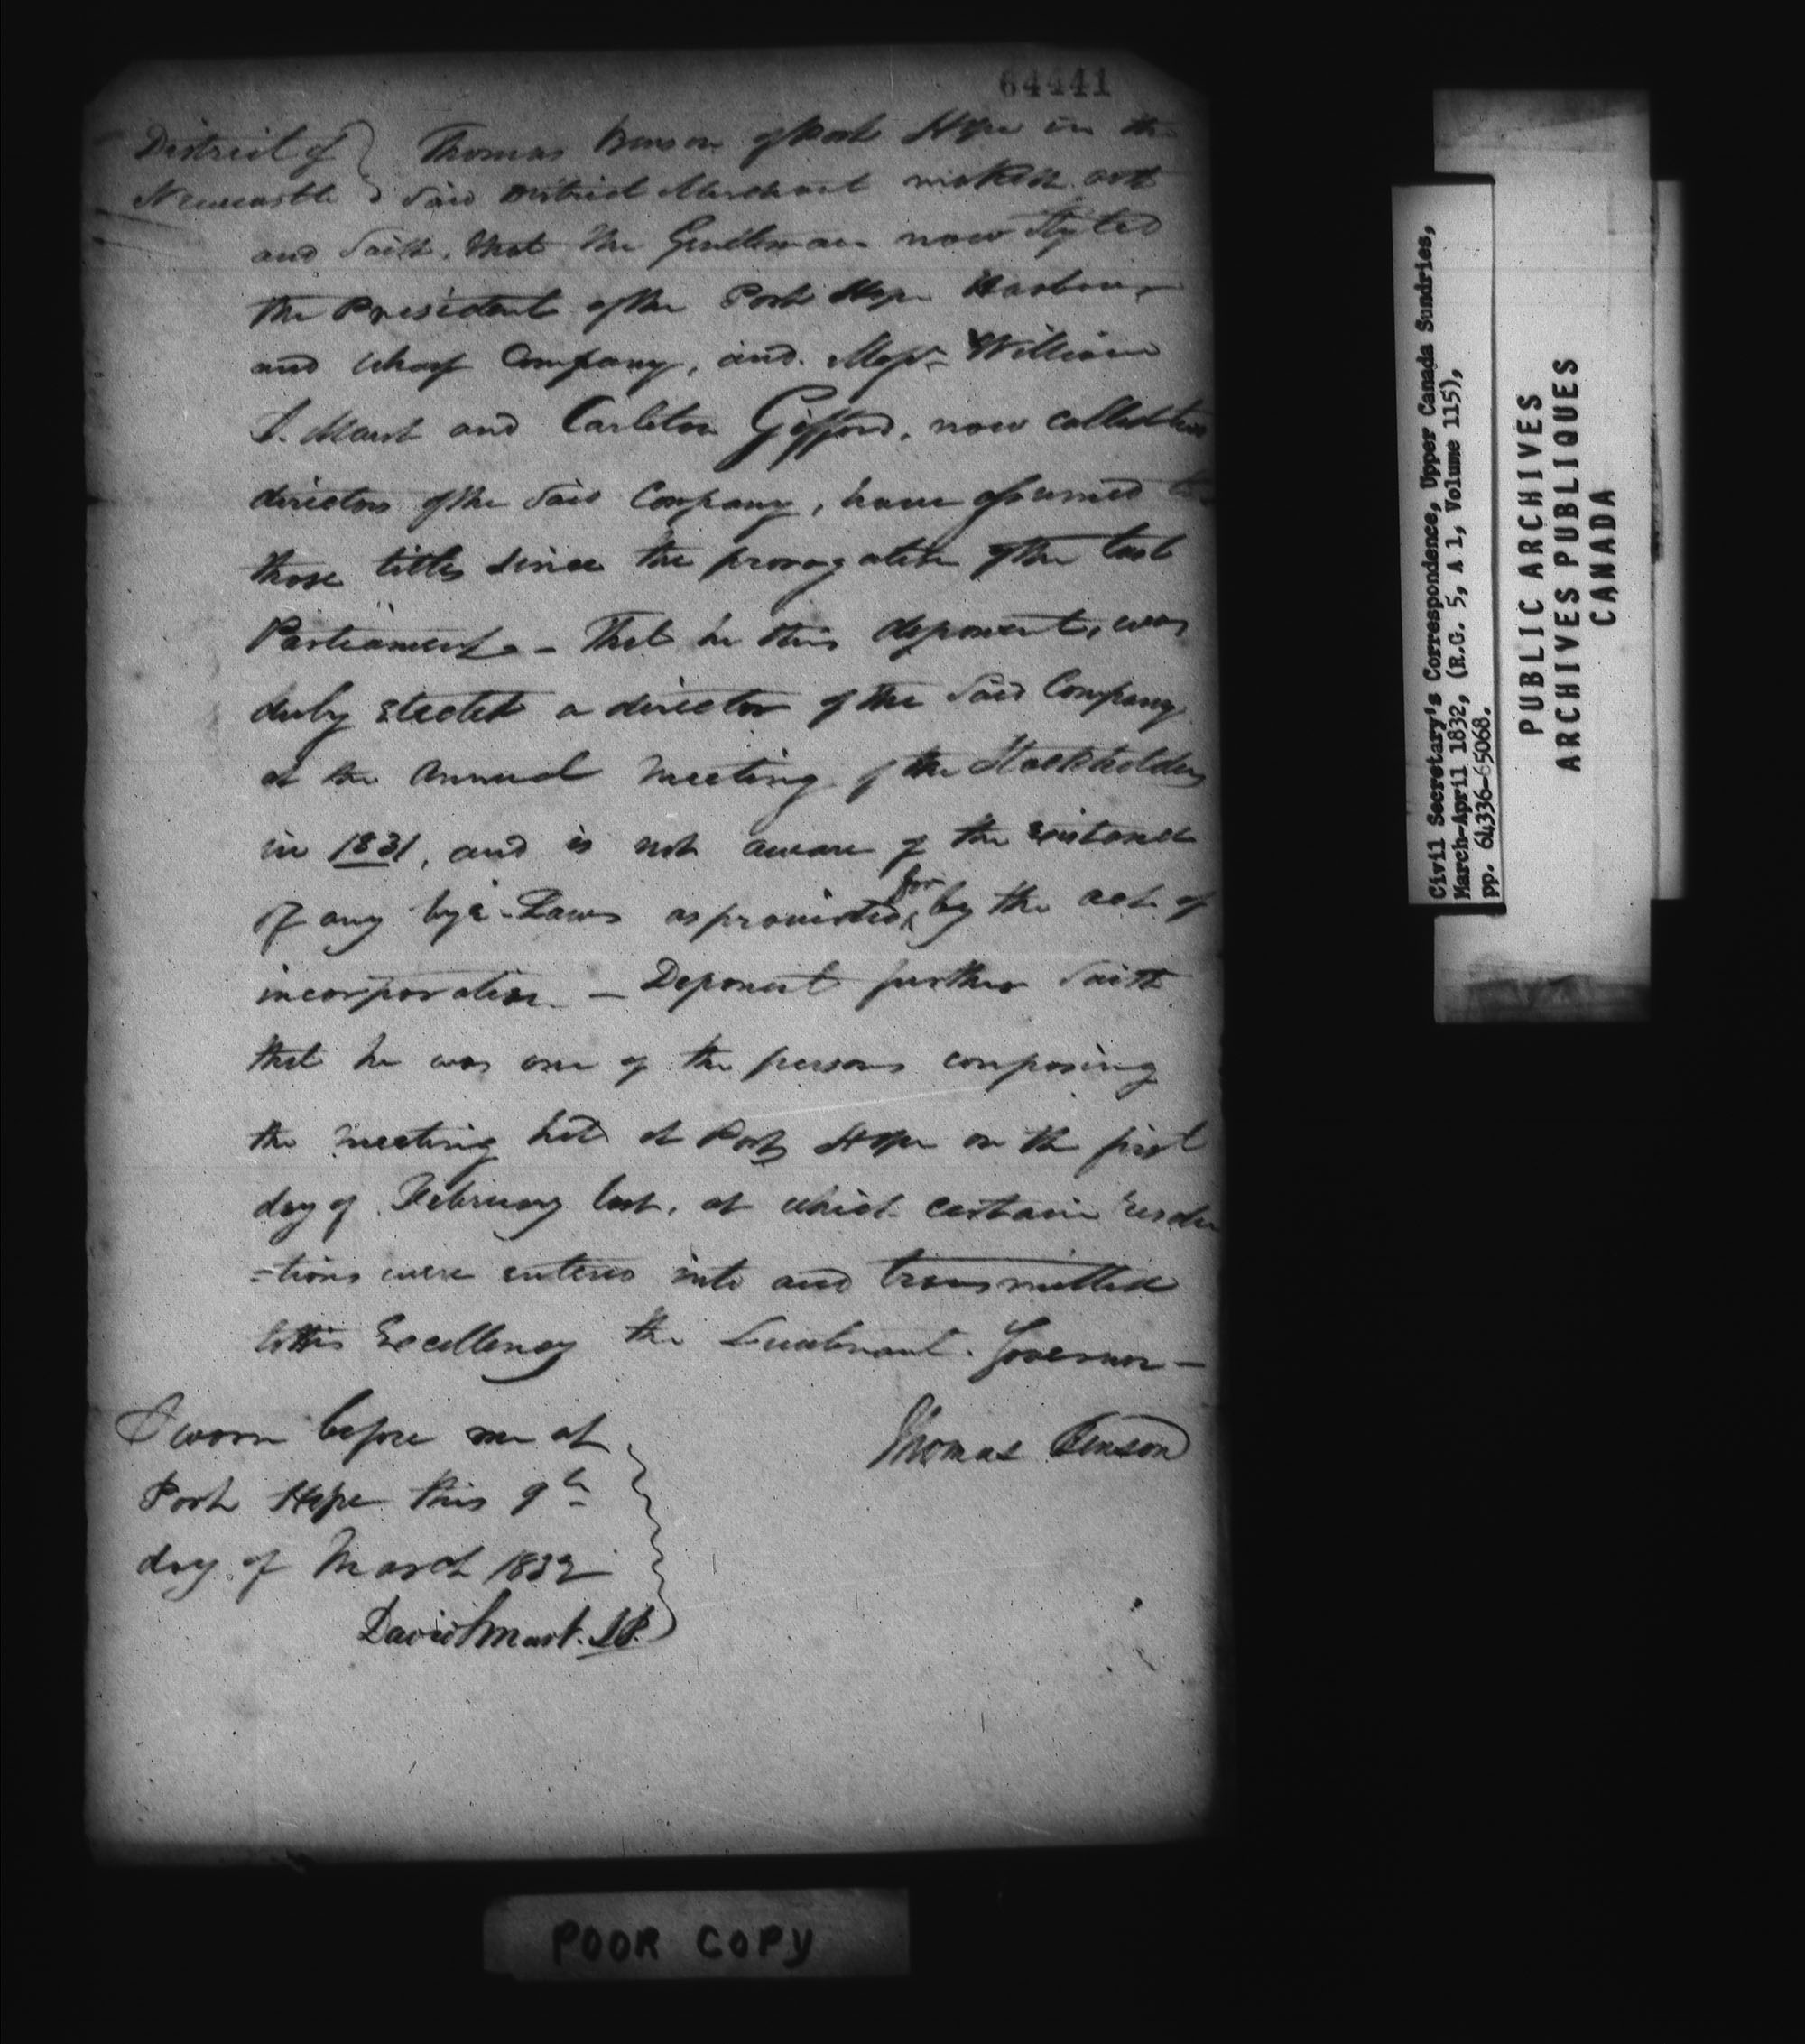 64441
District of } Thomas Benson of Port Hope in the
Newcastle } Said District Merchant maketh oath
and Saith, that the Gentleman now Styled
the President of the Port Hope Harbour
and Wharf Company, and Messrs William
S. Marsh and Carleton Gifford, now
directors of the Said Company, have assumed
those titles since the prorogation of the last
Parliament. - That he this deponent, was
duly Elected a director of the Said Company
at the Annual Meeting of the Stockholders
in 1831, and is not aware of the Existance
of any bye-Laws as provided for by the act of
incorporation - Deponent further Saith
that he was one of the persons composing
the Meeting held at Port Hope on the first
day of February last, at which certain resolu
=tions were entered into and transmitted
to His Excellency the Lieutenant Governor -
Thomas Benson
Sworn before me at
Port Hope this 9th
day of March 1832
David Smart. J.P.
POOR COPY
Civil Secretary's Correspondence, Upper Canada Sundries,
March-April 1832, (R.G. 5, A 1, Volume 115),
pp. 64336-65068.
PUBLIC ARCHIVES
ARCHIVES PUBLIQUES
CANADA